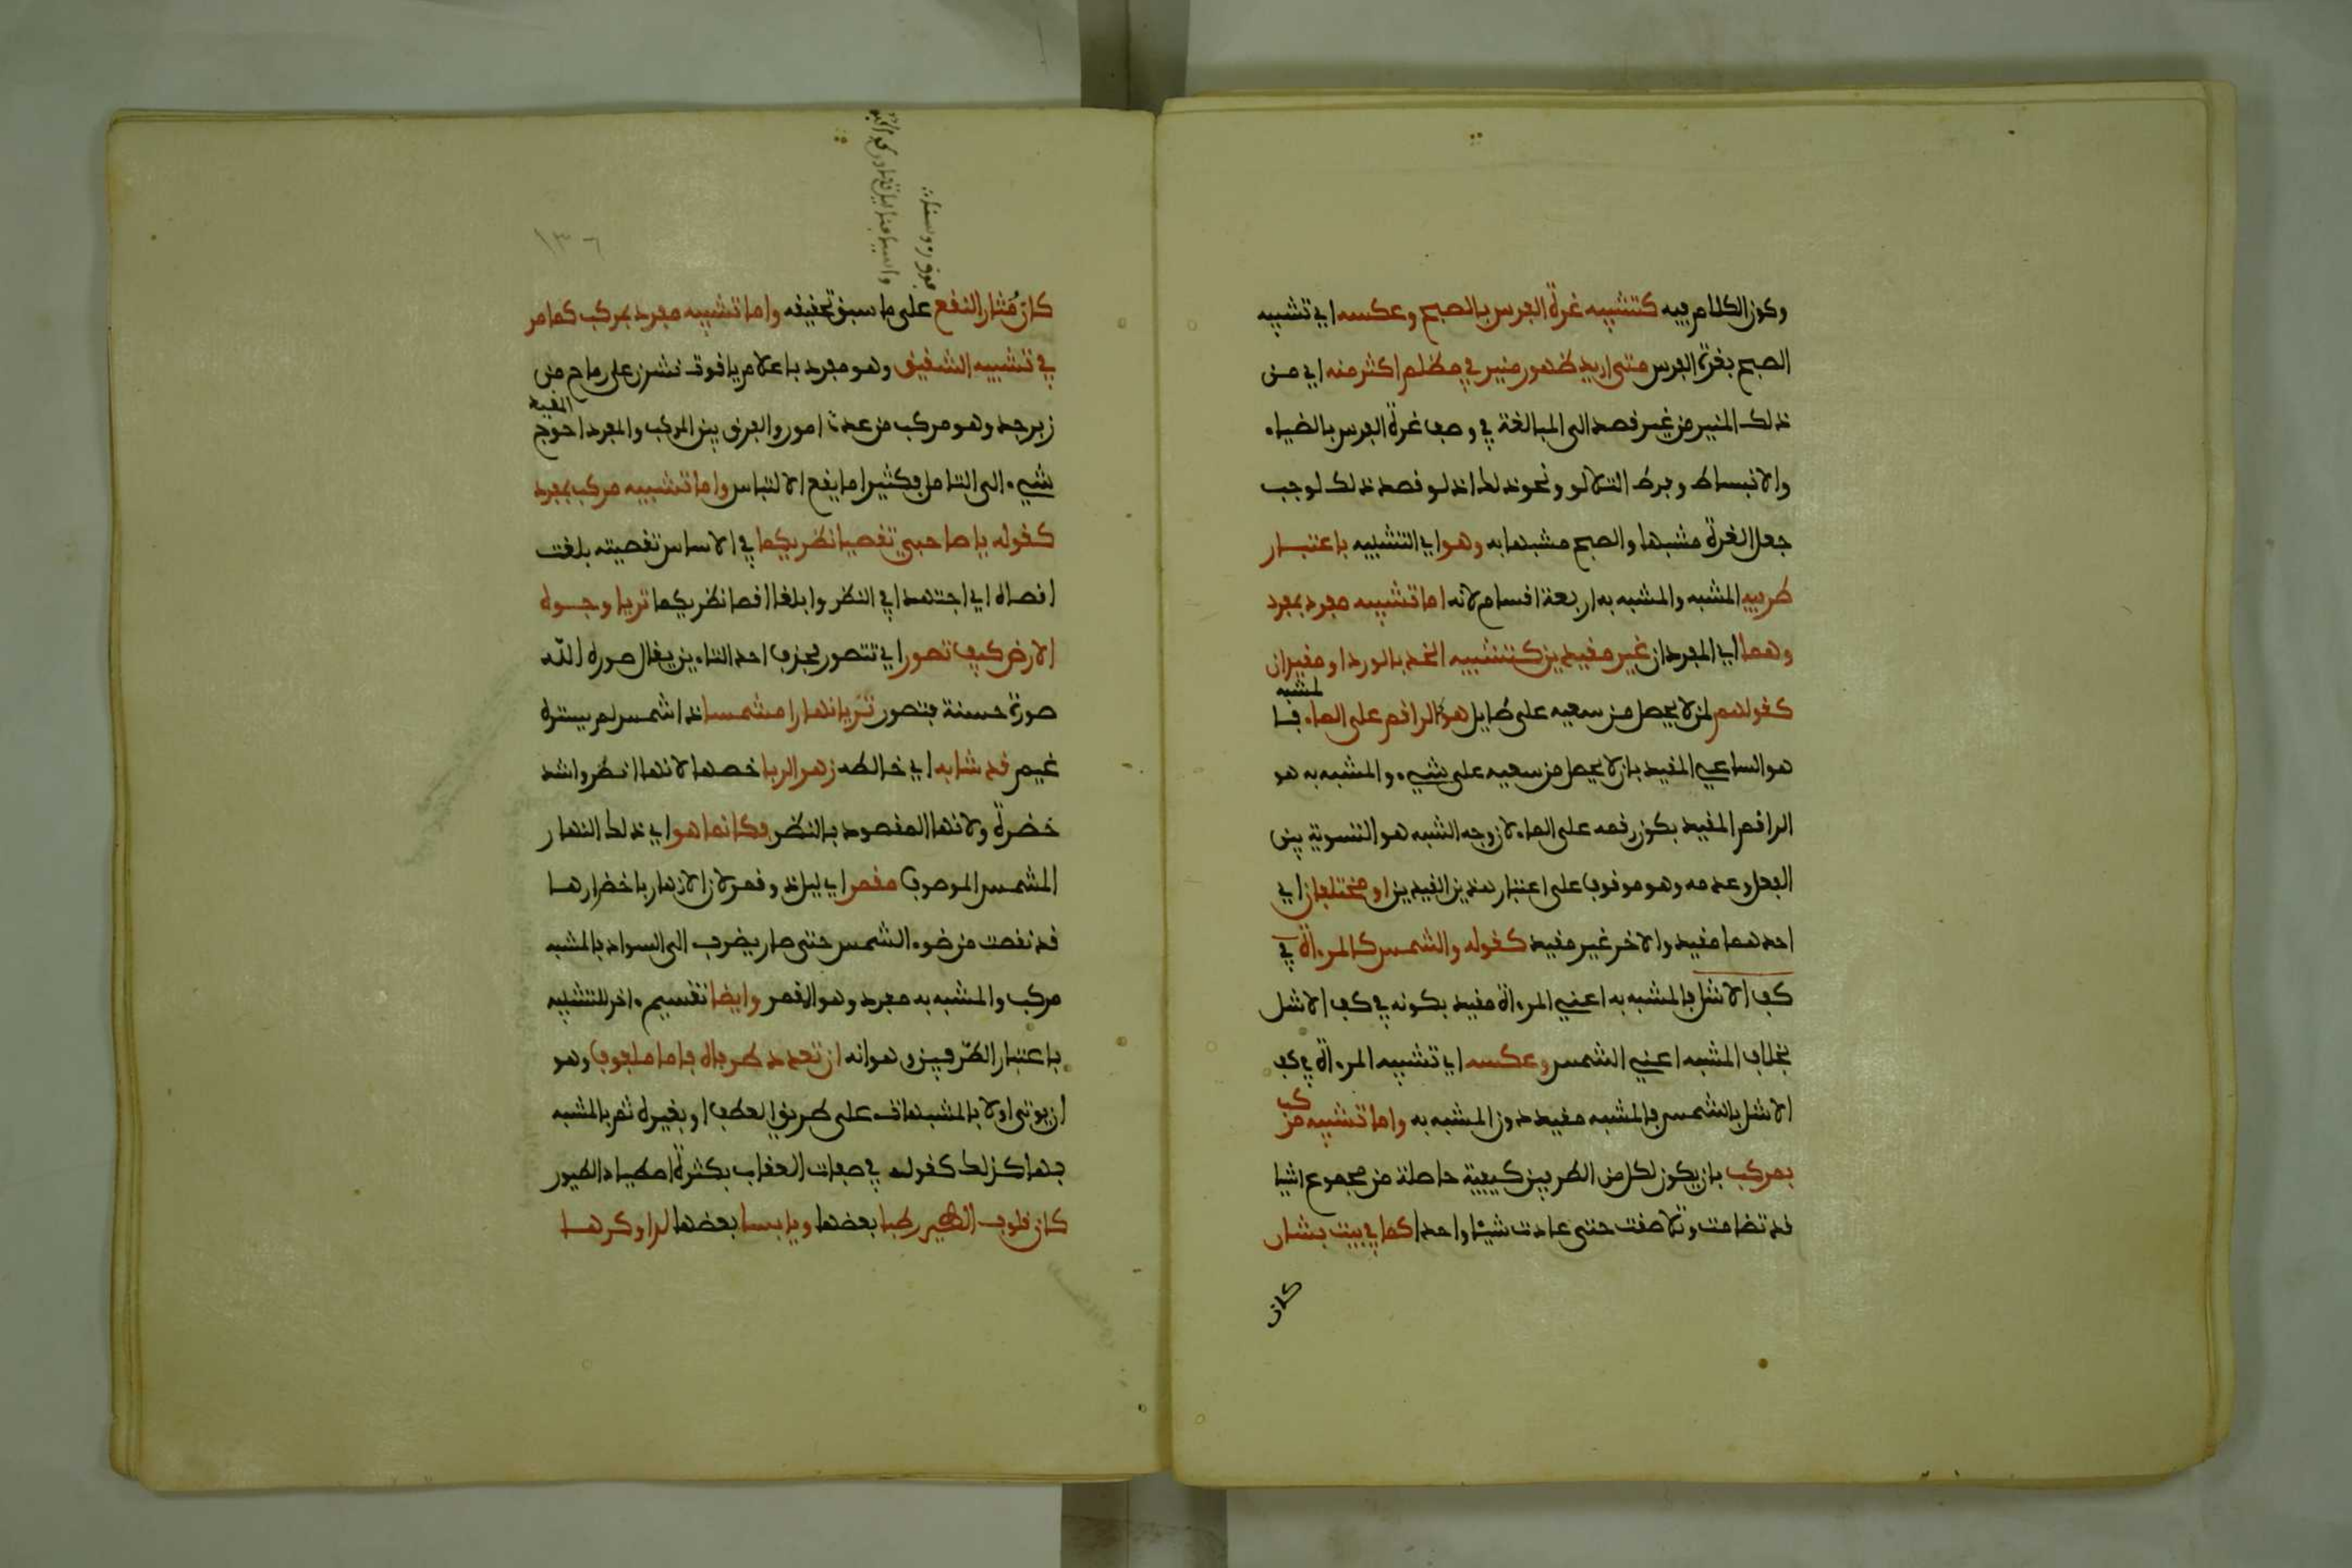 وكون الكلام فيه كتشبيه غرة الفرس بالصبح وعكسه اي تشبيه
الصبح بغرة الفرس متى اريد ظهور منير في مظلم اكثر منه اي من
ذلك المنير من غير قصد الى المبالغة في وصف غرة الفرس بالضياء
والانبساط وفرط التلالو ونحو ذلك اذ لو قصد ذلك لوجب
جعل الغرة مشبها والصبح مشبها به وهو اي التشبيه باعتبار
طرفيه المشبه والمشبه به اربعة اقسام لانه اما تشبيه مفرد بمفرد
وهما اي المفردان غير مقيدين كتشبيه الخد بالورد او مقيدان
كقولهم لمن لا يحصل من سعيه على طايل هو كالراقم على الماء فالمشبه
هو الساعي المقيد بان لا يحصل من سعيه على شيء والمشبه به هو
الراقم المقيد بكون رقمه على الماء لان وجه الشبه هو التسوية بين
الفعل وعدمه وهو موقوف على اعتبار هذين القيدين او مختلفان اي
احدهما مقيد والاخر غير مقيد كقوله والشمس كالمرءاة في
كف الاشل فالمشبه به اعني المرءاة مقيد بكونه في كف الاشل
بخلاف المشبه اعني الشمس وعكسه اي تشبيه المرءاة في كف
الاشل بالشمس فالمشبه مقيد دون المشبه به واما تشبيه مركب
بمركب بان يكون لكل من الطرفين كيفية حاصلة من مجموع اشيا
قد تضامت وتلاصقت حتى عادت شيئا واحدا كما في بيت بشار
كان
١٣٦
كان مثار النقع على ما سبق تحقيقه واما تشبيه مفرد بمركب كما مر
في تشبيه الشقيق وهو مفرد باعلام ياقوت نشرن على رماح من
زبرجد وهو مركب من عدة امور والفرق بين المركب والمفرد المقيد احوج
شيء الى التامل فكثيرا ما يقع الالتباس واما تشبيه مركب بمفرد
كقوله يا صاحبي تقصيا نظريكما في الاساس تقصيته بلغت
اقصاه اي اجتهدا في النظر وابلغا اقصا نظريكما تريا وجوه
الارض كيف تصور اي تتصور بحذف احد التاءين يقال صوره الله
صورة حسنة فتصور تريا نهارا مشمسا ذا شمس لم يستره
غيم قد شابه اي خالطه زهر الربا خصها لانها انضر واشد
خضرة ولانها المقصود بالنظر فكانما هو اي ذلك النهار
المشمس الموصوف مقمر اي ليل ذو قمر لان الازهار باخضرارها
قد نقصت من ضوء الشمس حتى صار يضرب الى السواد فالمشبه
مركب والمشبه به مفرد وهو القمر وايضا تقسيم ءاخر للتشبيه
باعتبار الطرفين وهو انه ان تعدد طرفاه فاما ملفوف وهو
ان يوتى اولا بالمشبهات على طريق العطف او بغيره ثم بالمشبه
بها كذلك كقوله في صفات العقاب بكثرة اصطياد الطيور
كان قلوب الطير رطبا بعضها ويابسا بعضها لدا وكرها